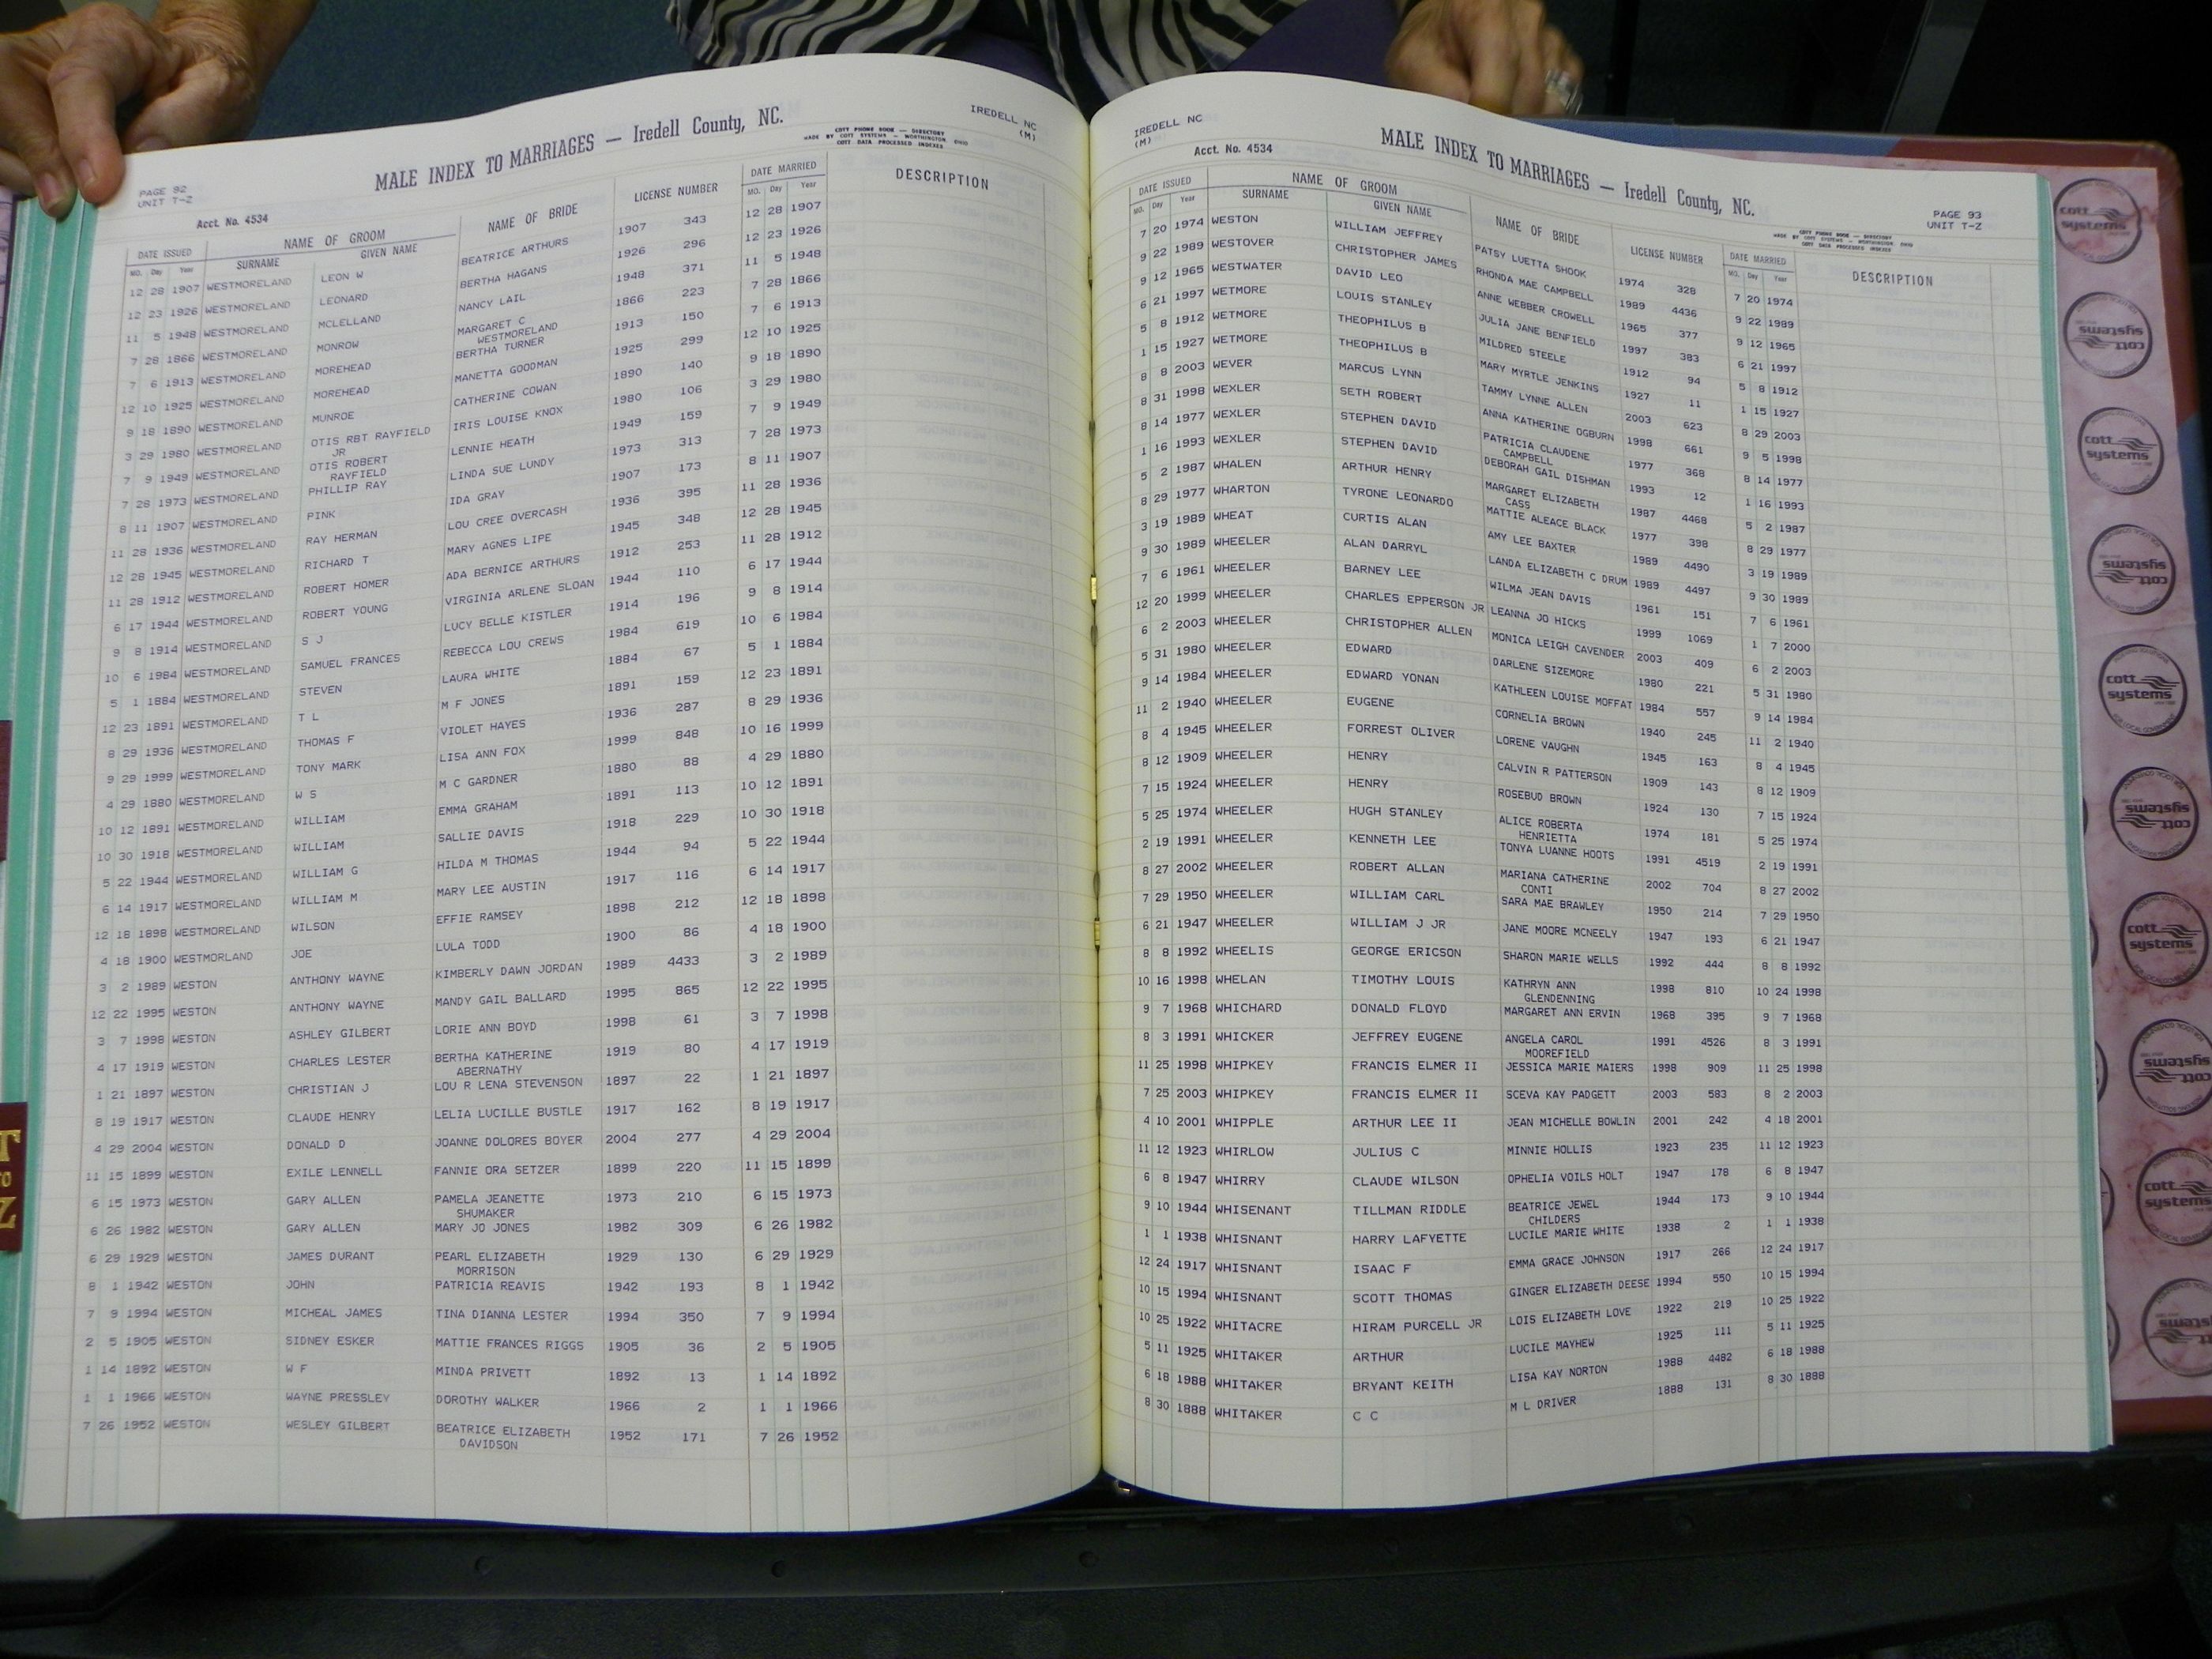 IREDELL NC
(M)
MALE INDEX TO MARRIAGES — Iredell County, NC.
COTT PHONE BOOK — DIRECTORY
MADE BY COTT SYSTEMS — WORTHINGTON OHIO
COTT DATA PROCESSED INDEXES
PAGE 92
UNIT T-Z
Acct. No. 4534
DATE ISSUED NAME OF GROOM NAME OF BRIDE LICENSE NUMBER DATE MARRIED DESCRIPTION
MO. Day Year SURNAME GIVEN NAME MO. Day Year
12 28 1907 WESTMORELAND LEON W BEATRICE ARTHURS 1907 343 12 28 1907
12 23 1926 WESTMORELAND LEONARD BERTHA HAGANS 1926 296 12 23 1926
11 5 1948 WESTMORELAND MCLELLAND NANCY LAIL 1948 371 11 5 1948
7 28 1866 WESTMORELAND MONROW MARGARET C 1866 223 7 28 1866
WESTMORELAND
7 6 1913 WESTMORELAND MOREHEAD BERTHA TURNER 1913 150 7 6 1913
12 10 1925 WESTMORELAND MOREHEAD MANETTA GOODMAN 1925 299 12 10 1925
9 18 1890 WESTMORELAND MUNROE CATHERINE COWAN 1890 140 9 18 1890
3 29 1980 WESTMORELAND OTIS RBT RAYFIELD IRIS LOUISE KNOX 1980 106 3 29 1980
JR
7 9 1949 WESTMORELAND OTIS ROBERT LENNIE HEATH 1949 159 7 9 1949
RAYFIELD
7 28 1973 WESTMORELAND PHILLIP RAY LINDA SUE LUNDY 1973 313 7 28 1973
8 11 1907 WESTMORELAND PINK IDA GRAY 1907 173 8 11 1907
11 28 1936 WESTMORELAND RAY HERMAN LOU CREE OVERCASH 1936 395 11 28 1936
12 28 1945 WESTMORELAND RICHARD T MARY AGNES LIPE 1945 348 12 28 1945
11 28 1912 WESTMORELAND ROBERT HOMER ADA BERNICE ARTHURS 1912 253 11 28 1912
6 17 1944 WESTMORELAND ROBERT YOUNG VIRGINIA ARLENE SLOAN 1944 110 6 17 1944
9 8 1914 WESTMORELAND S J LUCY BELLE KISTLER 1914 196 9 8 1914
10 6 1984 WESTMORELAND SAMUEL FRANCES REBECCA LOU CREWS 1984 619 10 6 1984
5 1 1884 WESTMORELAND STEVEN LAURA WHITE 1884 67 5 1 1884
12 23 1891 WESTMORELAND T L M F JONES 1891 159 12 23 1891
8 29 1936 WESTMORELAND THOMAS F VIOLET HAYES 1936 287 8 29 1936
9 29 1999 WESTMORELAND TONY MARK LISA ANN FOX 1999 848 10 16 1999
4 29 1880 WESTMORELAND W S M C GARDNER 1880 88 4 29 1880
10 12 1891 WESTMORELAND WILLIAM EMMA GRAHAM 1891 113 10 12 1891
10 30 1918 WESTMORELAND WILLIAM SALLIE DAVIS 1918 229 10 30 1918
5 22 1944 WESTMORELAND WILLIAM G HILDA M THOMAS 1944 94 5 22 1944
6 14 1917 WESTMORELAND WILLIAM M MARY LEE AUSTIN 1917 116 6 14 1917
12 18 1898 WESTMORELAND WILSON EFFIE RAMSEY 1898 212 12 18 1898
4 18 1900 WESTMORLAND JOE LULA TODD 1900 86 4 18 1900
3 2 1989 WESTON ANTHONY WAYNE KIMBERLY DAWN JORDAN 1989 4433 3 2 1989
12 22 1995 WESTON ANTHONY WAYNE MANDY GAIL BALLARD 1995 865 12 22 1995
3 7 1998 WESTON ASHLEY GILBERT LORIE ANN BOYD 1998 61 3 7 1998
4 17 1919 WESTON CHARLES LESTER BERTHA KATHERINE 1919 80 4 17 1919
ABERNATHY
1 21 1897 WESTON CHRISTIAN J LOU R LENA STEVENSON 1897 22 1 21 1897
8 19 1917 WESTON CLAUDE HENRY LELIA LUCILLE BUSTLE 1917 162 8 19 1917
4 29 2004 WESTON DONALD D JOANNE DOLORES BOYER 2004 277 4 29 2004
11 15 1899 WESTON EXILE LENNELL FANNIE ORA SETZER 1899 220 11 15 1899
6 15 1973 WESTON GARY ALLEN PAMELA JEANETTE 1973 210 6 15 1973
SHUMAKER
6 26 1982 WESTON GARY ALLEN MARY JO JONES 1982 309 6 26 1982
6 29 1929 WESTON JAMES DURANT PEARL ELIZABETH 1929 130 6 29 1929
MORRISON
8 1 1942 WESTON JOHN PATRICIA REAVIS 1942 193 8 1 1942
7 9 1994 WESTON MICHEAL JAMES TINA DIANNA LESTER 1994 350 7 9 1994
2 5 1905 WESTON SIDNEY ESKER MATTIE FRANCES RIGGS 1905 36 2 5 1905
1 14 1892 WESTON W F MINDA PRIVETT 1892 13 1 14 1892
1 1 1966 WESTON WAYNE PRESSLEY DOROTHY WALKER 1966 2 1 1 1966
7 26 1952 WESTON WESLEY GILBERT BEATRICE ELIZABETH 1952 171 7 26 1952
DAVIDSON
IREDELL NC
(M)
Acct. No. 4534
MALE INDEX TO MARRIAGES — Iredell County, NC.
MADE BY COTT SYSTEMS — WORTHINGTON OHIO
COTT DATA PROCESSED INDEXES
PAGE 93
UNIT T-Z
DATE ISSUED NAME OF GROOM NAME OF BRIDE LICENSE NUMBER DATE MARRIED DESCRIPTION
MO. Day Year SURNAME GIVEN NAME MO. Day Year
7 20 1974 WESTON WILLIAM JEFFREY PATSY LUETTA SHOOK 1974 328 7 20 1974
9 22 1989 WESTOVER CHRISTOPHER JAMES RHONDA MAE CAMPBELL 1989 4436 9 22 1989
9 12 1965 WESTWATER DAVID LEO ANNE WEBBER CROWELL 1965 377 9 12 1965
6 21 1997 WETMORE LOUIS STANLEY JULIA JANE BENFIELD 1997 383 6 21 1997
5 8 1912 WETMORE THEOPHILUS B MILDRED STEELE 1912 94 5 8 1912
1 15 1927 WETMORE THEOPHILUS B MARY MYRTLE JENKINS 1927 11 1 15 1927
8 8 2003 WEVER MARCUS LYNN TAMMY LYNNE ALLEN 2003 623 8 29 2003
8 31 1998 WEXLER SETH ROBERT ANNA KATHERINE OGBURN 1998 661 9 5 1998
8 14 1977 WEXLER STEPHEN DAVID PATRICIA CLAUDENE 1977 368 8 14 1977
CAMPBELL
1 16 1993 WEXLER STEPHEN DAVID DEBORAH GAIL DISHMAN 1993 12 1 16 1993
5 2 1987 WHALEN ARTHUR HENRY MARGARET ELIZABETH 1987 4468 5 2 1987
CASS
8 29 1977 WHARTON TYRONE LEONARDO MATTIE ALEACE BLACK 1977 398 8 29 1977
3 19 1989 WHEAT CURTIS ALAN AMY LEE BAXTER 1989 4490 3 19 1989
9 30 1989 WHEELER ALAN DARRYL LANDA ELIZABETH C DRUM 1989 4497 9 30 1989
7 6 1961 WHEELER BARNEY LEE WILMA JEAN DAVIS 1961 151 7 6 1961
12 20 1999 WHEELER CHARLES EPPERSON JR LEANNA JO HICKS 1999 1069 1 7 2000
6 2 2003 WHEELER CHRISTOPHER ALLEN MONICA LEIGH CAVENDER 2003 409 6 2 2003
5 31 1980 WHEELER EDWARD DARLENE SIZEMORE 1980 221 5 31 1980
9 14 1984 WHEELER EDWARD YONAN KATHLEEN LOUISE MOFFAT 1984 557 9 14 1984
11 2 1940 WHEELER EUGENE CORNELIA BROWN 1940 245 11 2 1940
8 4 1945 WHEELER FORREST OLIVER LORENE VAUGHN 1945 163 8 4 1945
8 12 1909 WHEELER HENRY CALVIN R PATTERSON 1909 143 8 12 1909
7 15 1924 WHEELER HENRY ROSEBUD BROWN 1924 130 7 15 1924
5 25 1974 WHEELER HUGH STANLEY ALICE ROBERTA 1974 181 5 25 1974
HENRIETTA
2 19 1991 WHEELER KENNETH LEE TONYA LUANNE HOOTS 1991 4519 2 19 1991
8 27 2002 WHEELER ROBERT ALLAN MARIANA CATHERINE 2002 704 8 27 2002
CONTI
7 29 1950 WHEELER WILLIAM CARL SARA MAE BRAWLEY 1950 214 7 29 1950
6 21 1947 WHEELER WILLIAM J JR JANE MOORE MCNEELY 1947 193 6 21 1947
8 8 1992 WHEELIS GEORGE ERICSON SHARON MARIE WELLS 1992 444 8 8 1992
10 16 1998 WHELAN TIMOTHY LOUIS KATHRYN ANN 1998 810 10 24 1998
GLENDENNING
9 7 1968 WHICHARD DONALD FLOYD MARGARET ANN ERVIN 1968 395 9 7 1968
8 3 1991 WHICKER JEFFREY EUGENE ANGELA CAROL 1991 4526 8 3 1991
MOOREFIELD
11 25 1998 WHIPKEY FRANCIS ELMER II JESSICA MARIE MAIERS 1998 909 11 25 1998
7 25 2003 WHIPKEY FRANCIS ELMER II SCEVA KAY PADGETT 2003 583 8 2 2003
4 10 2001 WHIPPLE ARTHUR LEE II JEAN MICHELLE BOWLIN 2001 242 4 18 2001
11 12 1923 WHIRLOW JULIUS C MINNIE HOLLIS 1923 235 11 12 1923
6 8 1947 WHIRRY CLAUDE WILSON OPHELIA VOILS HOLT 1947 178 6 8 1947
9 10 1944 WHISENANT TILLMAN RIDDLE BEATRICE JEWEL 1944 173 9 10 1944
CHILDERS
1 1 1938 WHISNANT HARRY LAFYETTE LUCILE MARIE WHITE 1938 2 1 1 1938
12 24 1917 WHISNANT ISAAC F EMMA GRACE JOHNSON 1917 266 12 24 1917
10 15 1994 WHISNANT SCOTT THOMAS GINGER ELIZABETH DEESE 1994 550 10 15 1994
10 25 1922 WHITACRE HIRAM PURCELL JR LOIS ELIZABETH LOVE 1922 219 10 25 1922
5 11 1925 WHITAKER ARTHUR LUCILE MAYHEW 1925 111 5 11 1925
6 18 1988 WHITAKER BRYANT KEITH LISA KAY NORTON 1988 4482 6 18 1988
8 30 1888 WHITAKER C C M L DRIVER 1888 131 8 30 1888
T
TO
Z
cott
systems
cott
systems
cott
systems
cott
systems
cott
systems
cott
systems
cott
systems
cott
systems
cott
systems